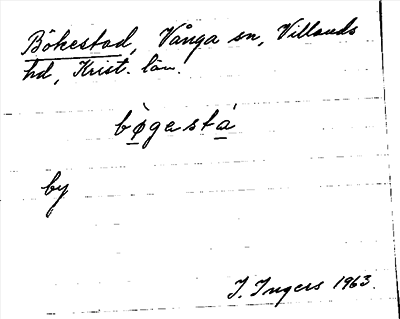 Bökestad, Vånga sn, Villands
hd, Krist. län.
bø̀gestá
by
I. Ingers 1963.